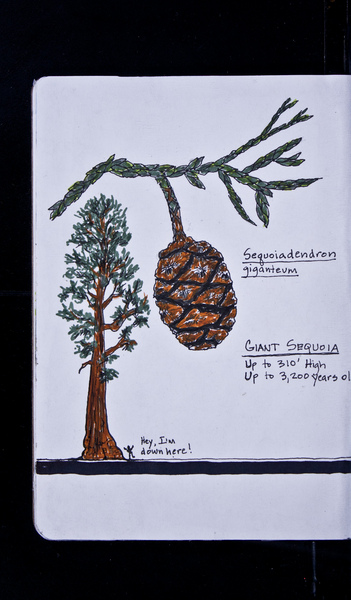 Sequoiadendron
giganteum
GIANT SEQUOIA
Up to 310' High
Up to 3,200 years ol
Hey, I'm
down here!